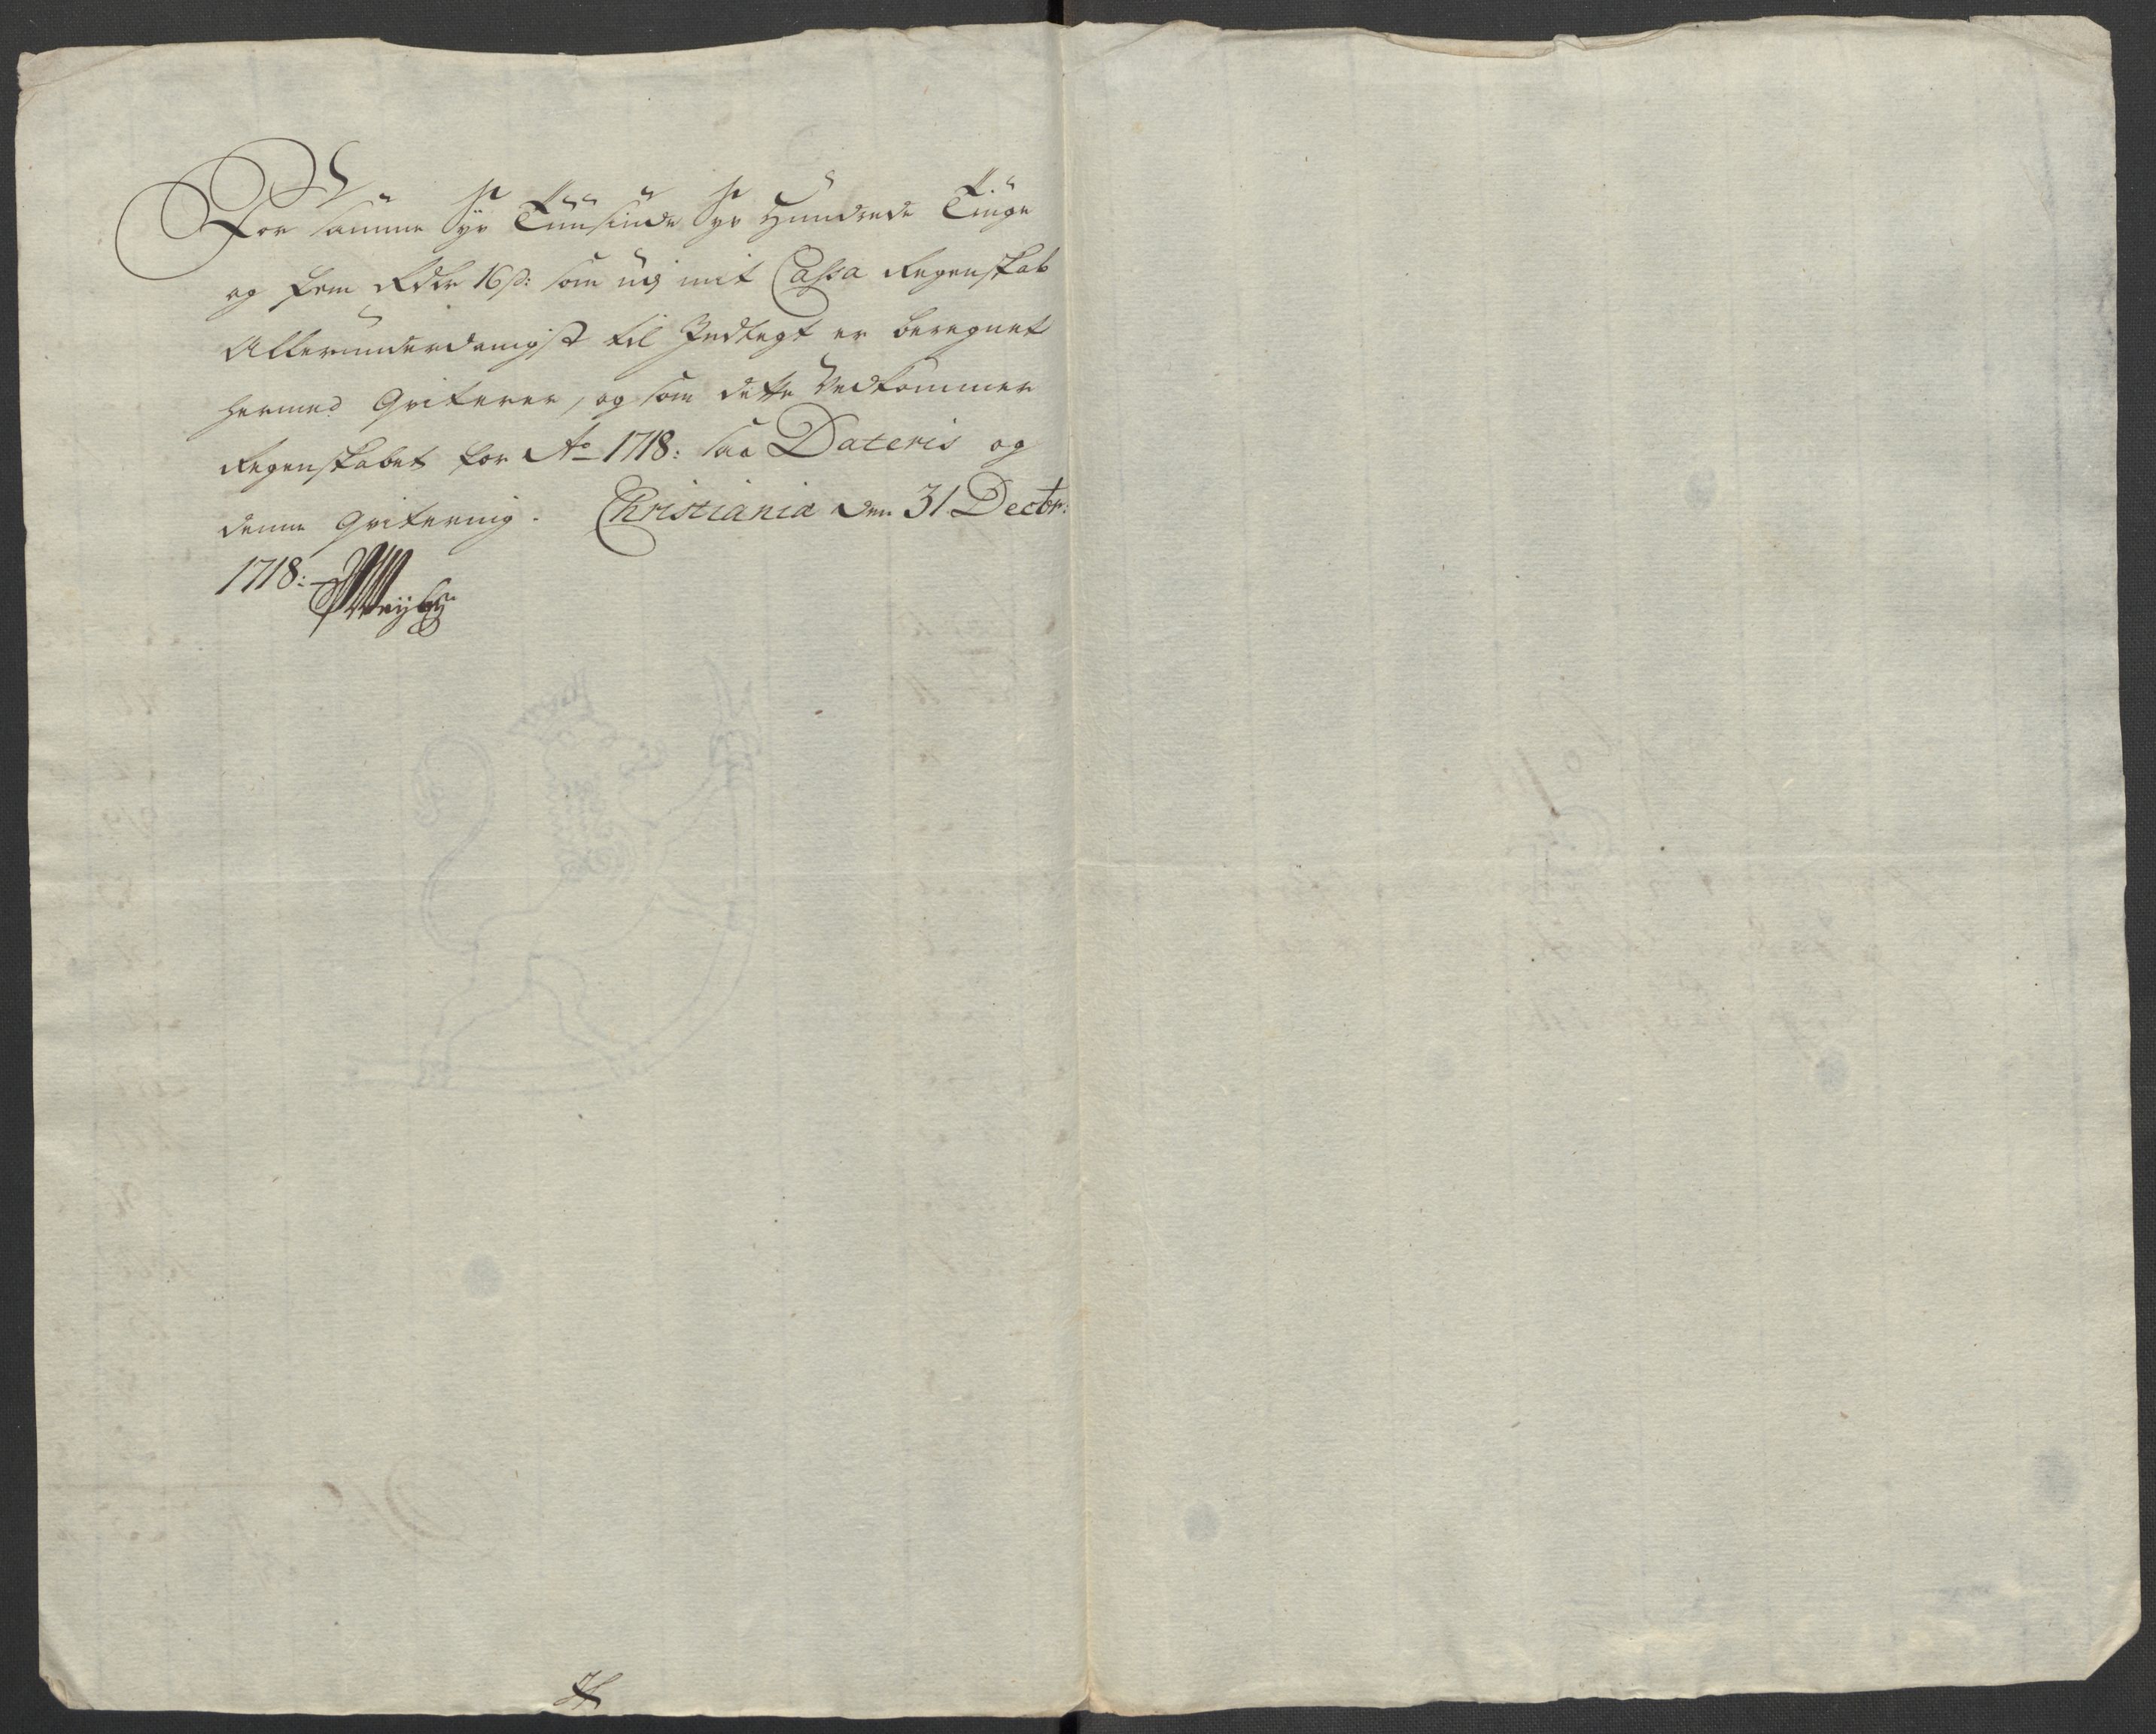 For samme Syv Tuusinde Syv Hundrede Tiuge
og fem Rdlr 16 s: som udj mit Cassa Regenskab
Allerunderdanigst til Indtegt er beregnet
hermed Qviterer, og som dette Vedkommer
Regenskabet for Ao 1718: saa Dateris og
denne Qvitering. Christiania den 31 Decbr:
1718: